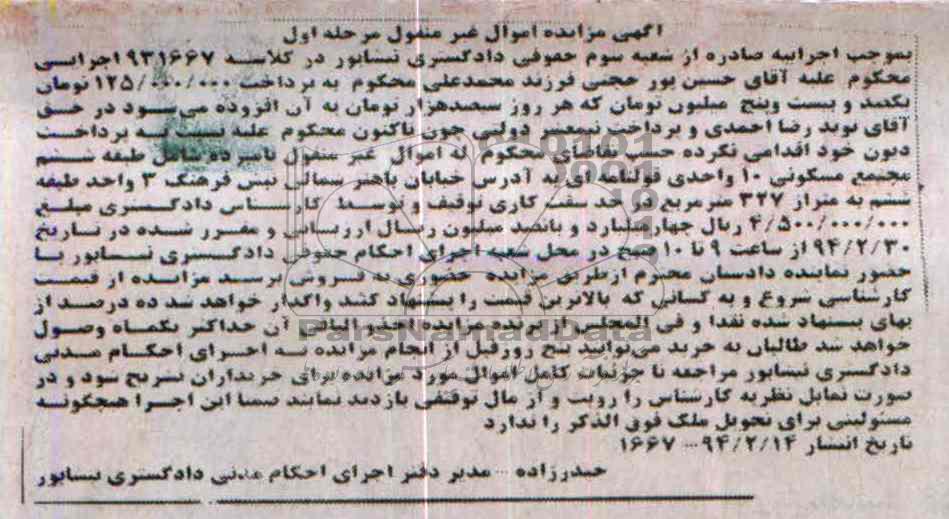 آگهی مزایده اموال غیر منقول مرحله اول
بموجب اجرائیه صادره از شعبه سوم حقوقی دادگستری نیشابور در کلاسه ۹۳۱۶۶۷ اجرایی
محکوم علیه آقای حسین پور حجتی فرزند محمدعلی محکوم به پرداخت ۱۲۵/۰۰۰/۰۰۰ تومان
یکصد و بیست وپنج میلیون تومان که هر روز سیصدهزار تومان به آن افزوده می‌شود در حق
آقای نوید رضا احمدی و پرداخت نیمعشر دولتی چون تاکنون محکوم علیه نسبت به پرداخت
دیون خود اقدامی نکرده حسب تقاضای محکوم له اموال غیر منقول نامبرده شامل طبقه ششم
مجتمع مسکونی ۱۰ واحدی قولنامه ای به آدرس خیابان باهنر شمالی نبش فرهنگ ۳ واحد طبقه
ششم به متراژ ۳۲۷ مترمربع در حد سفت کاری توقیف و توسط کارشناس دادگستری مبلغ
۴/۵۰۰/۰۰۰/۰۰۰ ریال چهار میلیارد و پانصد میلیون ریال ارزیابی و مقرر شده در تاریخ
۹۴/۲/۳۰ از ساعت ۹ تا ۱۰ صبح در محل شعبه اجرای احکام حقوقی دادگستری نیشابور با
حضور نماینده دادستان محترم ازطریق مزایده حضوری به فروش برسد مزایده از قیمت
کارشناسی شروع و به کسانی که بالاترین قیمت را پیشنهاد کنند واگذار خواهد شد ده درصد از
بهای پیشنهاد شده نقدا و فی المجلس از برنده مزایده اخذ و الباقی آن حداکثر یکماه وصول
خواهد شد طالبان به خرید می‌توانند پنج روزقبل از انجام مزایده به اجرای احکام مدنی
دادگستری نیشابور مراجعه تا جزئیات کامل اموال مورد مزایده برای خریداران تشریح شود و در
صورت تمایل نظریه کارشناس را رویت و از مال توقیفی بازدید نمایند ضمنا این اجرا هیچگونه
مسئولیتی برای تحویل ملک فوق الذکر را ندارد
تاریخ انتشار ۹۴/۲/۱۴ ... ۱۶۶۷
حیدرزاده ... مدیر دفتر اجرای احکام مدنی دادگستری نیشابور
ParsNamadData